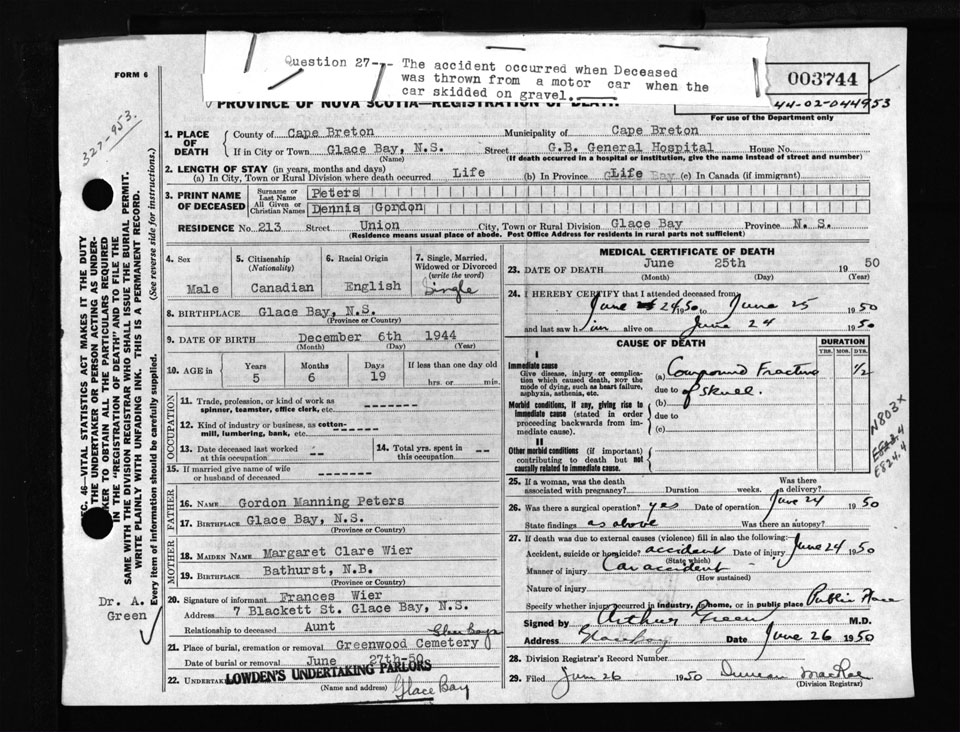 FORM 6
Question 27-- The accident occurred when Deceased
was thrown from a motor car when the
car skidded on gravel.
003744
44-02-044953
For use of the Department only
327-953.
PROVINCE OF NOVA SCOTIA—REGISTRATION OF DEATH
1. PLACE OF DEATH
County of Cape Breton Municipality of Cape Breton
If in City or Town Glace Bay, N.S. Street G.B. General Hospital House No.
(Name) (If death occurred in a hospital or institution, give the name instead of street and number)
2. LENGTH OF STAY (in years, months and days)
(a) In City, Town or Rural Division where death occurred Life (b) In Province Life (c) In Canada (if immigrant)
3. PRINT NAME OF DECEASED
Surname or Last Name Peters
All Given or Christian Names Dennis Gordon
RESIDENCE No. 213 Street Union City, Town or Rural Division Glace Bay Province N. S.
(Residence means usual place of abode. Post Office Address for residents in rural parts not sufficient)
4. Sex
Male
5. Citizenship (Nationality)
Canadian
6. Racial Origin
English
7. Single, Married, Widowed or Divorced (write the word)
Single
8. BIRTHPLACE Glace Bay, N.S.
(Province or Country)
9. DATE OF BIRTH December 6th 1944
(Month) (Day) (Year)
10. AGE in Years Months Days If less than one day old
5 6 19 hrs. or min.
OCCUPATION
11. Trade, profession, or kind of work as
spinner, teamster, office clerk, etc.
12. Kind of industry or business, as cotton-
mill, lumbering, bank, etc.
13. Date deceased last worked at this occupation
14. Total yrs. spent in this occupation
15. If married give name of wife
or husband of deceased
FATHER
16. NAME Gordon Manning Peters
17. BIRTHPLACE Glace Bay, N.S.
(Province or Country)
MOTHER
18. MAIDEN NAME Margaret Clare Wier
19. BIRTHPLACE Bathurst, N.B.
(Province or Country)
20. Signature of informant Frances Wier
Address 7 Blackett St. Glace Bay, N.S.
Relationship to deceased Aunt
Glace Bay
21. Place of burial, cremation or removal Greenwood Cemetery
Date of burial or removal June 27th-50
22. UNDERTAKER LOWDEN'S UNDERTAKING PARLORS
(Name and address) Glace Bay
MEDICAL CERTIFICATE OF DEATH
23. DATE OF DEATH June 25th 1950
(Month) (Day) (Year)
24. I HEREBY CERTIFY that I attended deceased from
June 24 1950 to June 25 1950
and last saw him alive on June 24 1950
CAUSE OF DEATH
DURATION
YRS. MOS. DYS.
I
Immediate cause
Give disease, injury or complica-
tion which caused death, not the
mode of dying, such as heart failure,
asphyxia, asthenia, etc.
(a) Compound Fracture 1/2
due to of skull.
Morbid conditions, if any, giving rise to
immediate cause (stated in order
proceeding backwards from im-
mediate cause).
(b)
due to
(c)
II
Other morbid conditions (if important)
contributing to death but not
causally related to immediate cause.
N803x
E824.4
25. If a woman, was the death
associated with pregnancy? Duration weeks. Was there a delivery?
26. Was there a surgical operation? yes Date of operation June 24 1950
State findings as above Was there an autopsy?
27. If death was due to external causes (violence) fill in also the following:
Accident, suicide or homicide? accident Date of injury June 24 1950
(State which)
Manner of injury Car accident
(How sustained)
Nature of injury
Specify whether injury occurred in industry, home, or in public place Public Place
Signed by Arthur Green M.D.
Address Glace Bay Date June 26 1950
28. Division Registrar's Record Number
29. Filed June 26 1950 Duncan MacRae
(Division Registrar)
SEC. 46—VITAL STATISTICS ACT MAKES IT THE DUTY
OF THE UNDERTAKER OR PERSON ACTING AS UNDER-
TAKER TO OBTAIN ALL THE PARTICULARS REQUIRED
IN THE "REGISTRATION OF DEATH" AND TO FILE THE
SAME WITH THE DIVISION REGISTRAR WHO SHALL ISSUE THE BURIAL PERMIT.
WRITE PLAINLY WITH UNFADING INK. THIS IS A PERMANENT RECORD.
Every item of information should be carefully supplied. (See reverse side for instructions.)
Dr. A.
Green